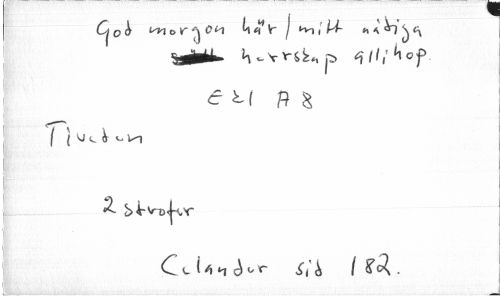 God morgon här / mitt nådiga
herrskap allihop.
E21 A8
Tiveden
2 strofer
Celander sid 182.